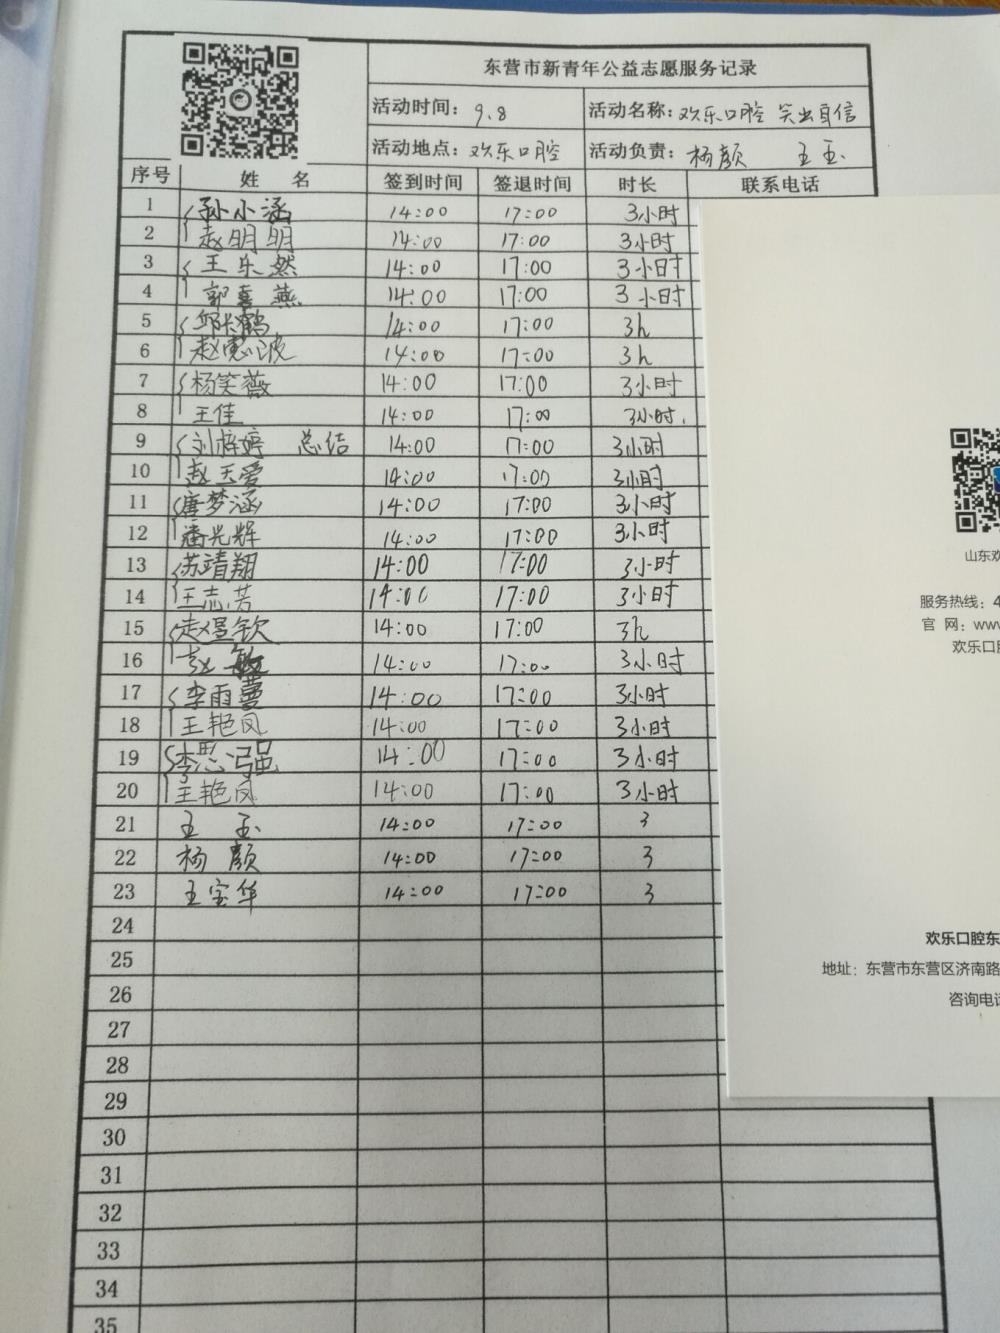 东营市新青年公益志愿服务记录
活动时间：9.8 活动名称：欢乐口腔 笑出自信
活动地点：欢乐口腔 活动负责：杨颜 王玉
序号 姓 名 签到时间 签退时间 时长 联系电话
1 孙小涵 14:00 17:00 3小时
2 赵明明 14:00 17:00 3小时
3 王乐然 14:00 17:00 3小时
4 郭喜燕 14:00 17:00 3小时
5 邱鹤 14:00 17:00 3h
6 赵惠波 14:00 17:00 3h
7 杨笑薇 14:00 17:00 3小时
8 王佳 14:00 17:00 3小时.
9 刘梓婷 总结 14:00 17:00 3小时
10 赵玉爱 14:00 17:00 3小时
11 唐梦涵 14:00 17:00 3小时
12 潘光辉 14:00 17:00 3小时
13 苏靖翔 14:00 17:00 3小时
14 王志芳 14:00 17:00 3小时
15 赵煜钦 14:00 17:00 3h
16 赵敏 14:00 17:00 3小时
17 李雨蔓 14:00 17:00 3小时
18 王艳凤 14:00 17:00 3小时
19 李思 14:00 17:00 3小时
20 王艳凤 14:00 17:00 3小时
21 王 玉 14:00 17:00 3
22 杨 颜 14:00 17:00 3
23 王宝华 14:00 17:00 3
24
25
26
27
28
29
30
31
32
33
34
35
山东欢
服务热线：4
官 网：www
欢乐口腔
欢乐口腔东
地址：东营市东营区济南路
咨询电话